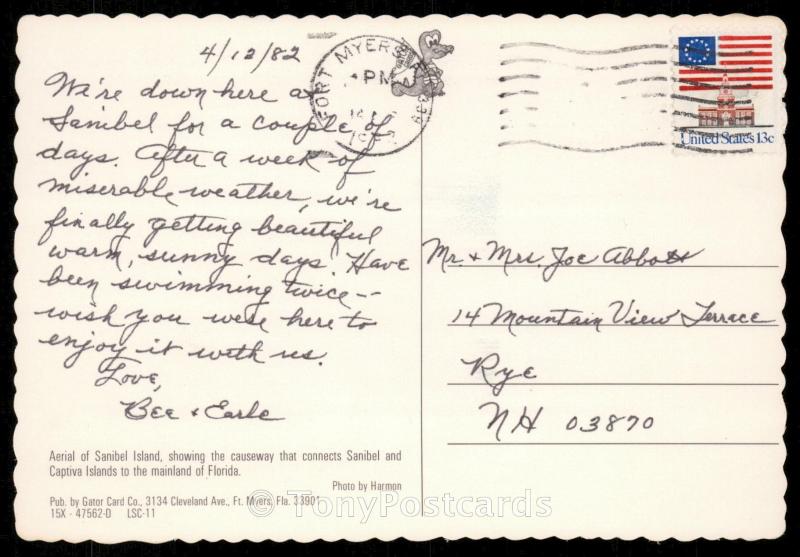 4/12/82
We're down here at
Sanibel for a couple of
days. After a week of
miserable weather, we're
finally getting beautiful
warm, sunny days. Have
been swimming twice--
wish you were here to
enjoy it with us.
Love,
Bee & Earle
Aerial of Sanibel Island, showing the causeway that connects Sanibel and
Captiva Islands to the mainland of Florida.
Photo by Harmon
Pub. by Gator Card Co., 3134 Cleveland Ave., Ft. Myers, Fla. 33901
15X - 47562-D LSC-11
FORT MYERS
PM
United States 13c
Mr. & Mrs. Joe Abbott
14 Mountain View Terrace
Rye
NH 03870
© TonyPostcards